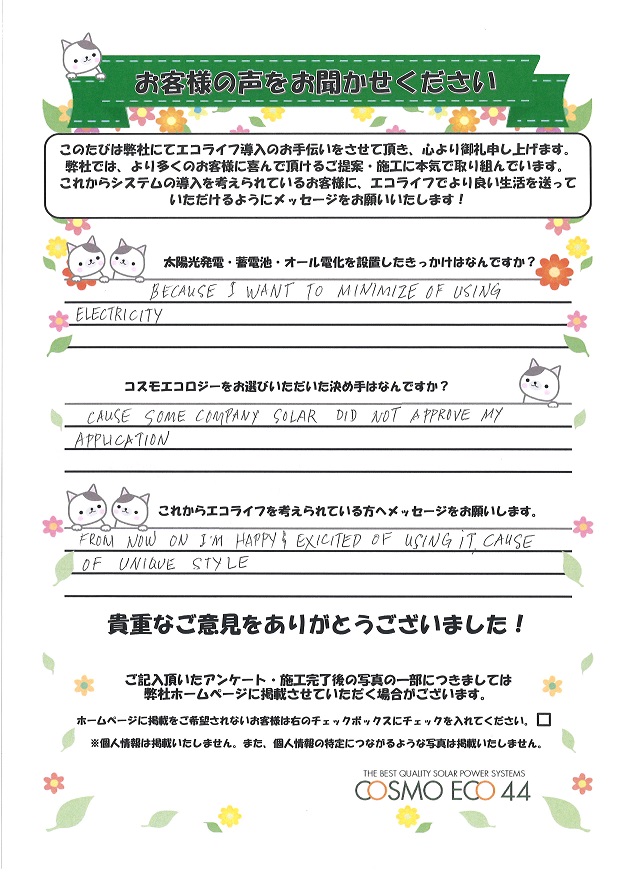 お客様の声をお聞かせください
このたびは弊社にてエコライフ導入のお手伝いをさせて頂き、心より御礼申し上げます。
弊社では、より多くのお客様に喜んで頂けるご提案・施工に本気で取り組んでいます。
これからシステムの導入を考えられているお客様に、エコライフでより良い生活を送って
いただけるようにメッセージをお願いいたします！
太陽光発電・蓄電池・オール電化を設置したきっかけはなんですか？
BECAUSE I WANT TO MINIMIZE OF USING
ELECTRICITY
コスモエコロジーをお選びいただいた決め手はなんですか？
CAUSE SOME COMPANY SOLAR DID NOT APPROVE MY
APPLICATION
これからエコライフを考えられている方へメッセージをお願いします。
FROM NOW ON I'M HAPPY & EXICITED OF USING IT, CAUSE
OF UNIQUE STYLE
貴重なご意見をありがとうございました！
ご記入頂いたアンケート・施工完了後の写真の一部につきましては
弊社ホームページに掲載させていただく場合がございます。
ホームページに掲載をご希望されないお客様は右のチェックボックスにチェックを入れてください。
※個人情報は掲載いたしません。また、個人情報の特定につながるような写真は掲載いたしません。
THE BEST QUALITY SOLAR POWER SYSTEMS
COSMO ECO 44